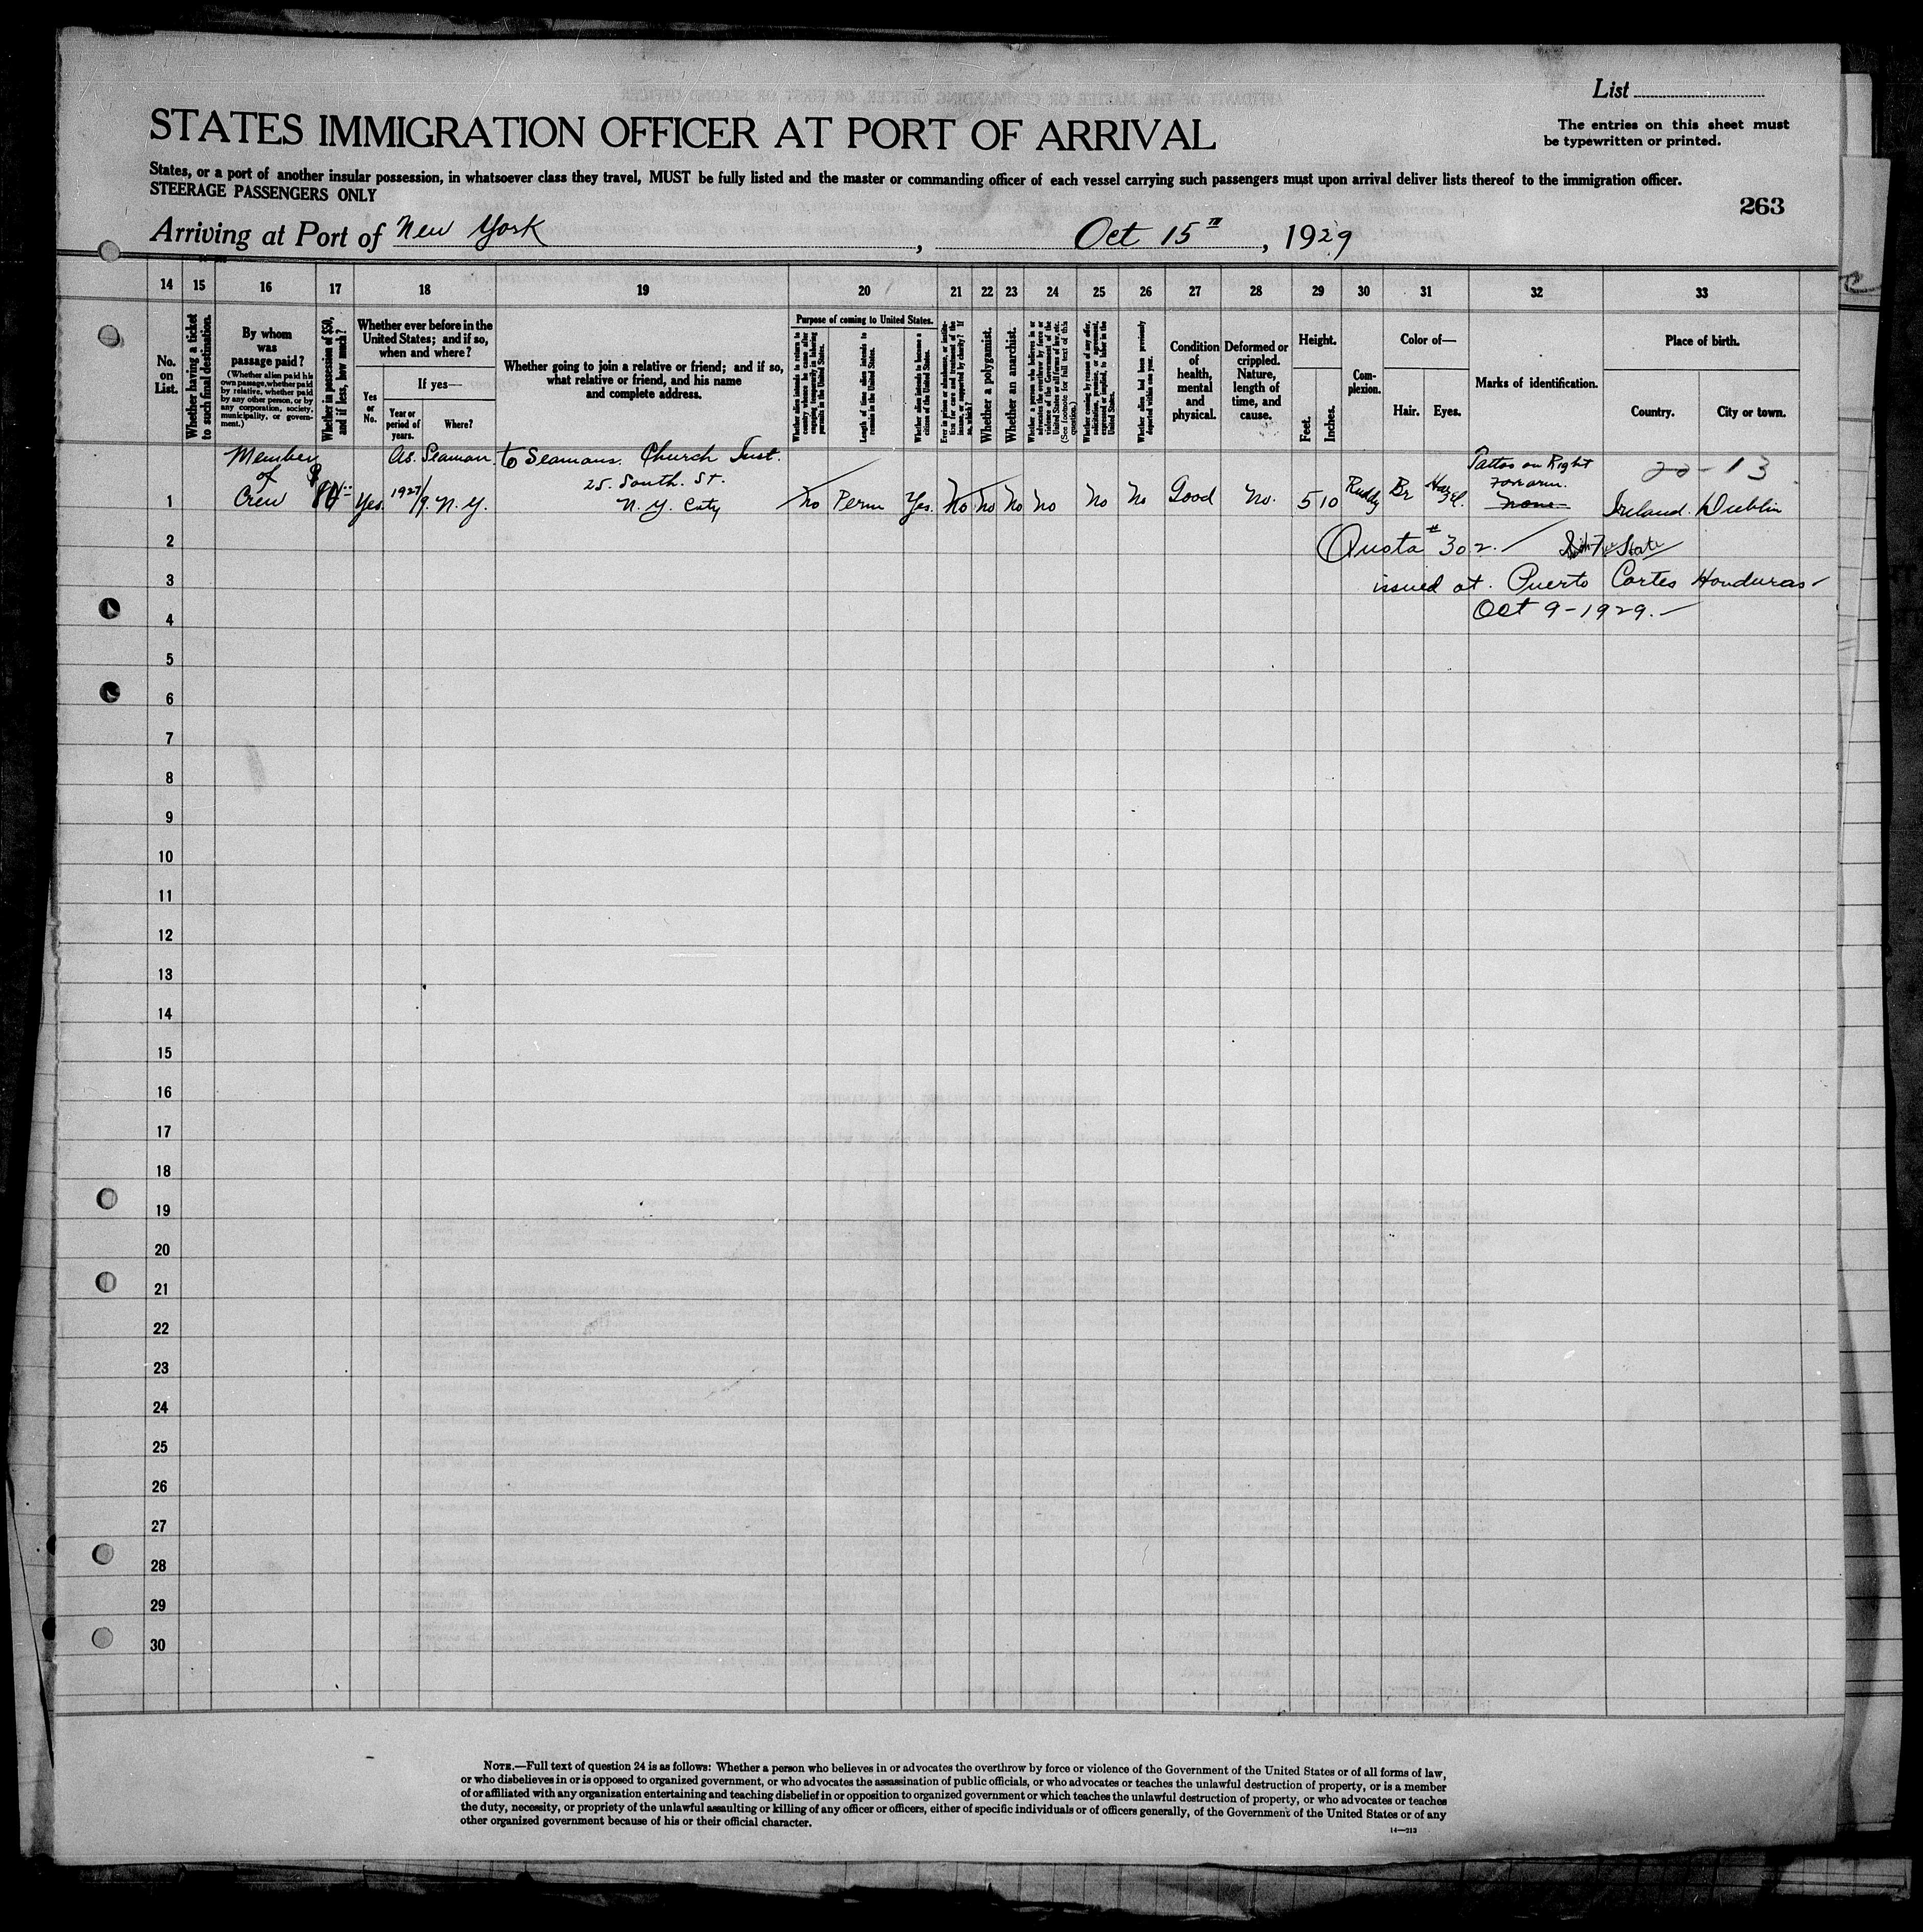 List
STATES IMMIGRATION OFFICER AT PORT OF ARRIVAL
The entries on this sheet must
be typewritten or printed.
States, or a port of another insular possession, in whatsoever class they travel, MUST be fully listed and the master or commanding officer of each vessel carrying such passengers must upon arrival deliver lists thereof to the immigration officer.
STEERAGE PASSENGERS ONLY
263
Arriving at Port of New York, Oct 15th, 1929
14 15 16 17 18 19 20 21 22 23 24 25 26 27 28 29 30 31 32 33
No. on List.
Whether having a ticket to such final destination.
By whom was passage paid?
(Whether alien paid his own passage, whether paid by relative, whether paid by any other person, or by any corporation, society, municipality, or government.)
Whether in possession of $50, and if less, how much?
Whether ever before in the United States; and if so, when and where?
Yes or No.
If yes—
Year or period of years.
Where?
Whether going to join a relative or friend; and if so, what relative or friend, and his name and complete address.
Purpose of coming to United States.
Whether alien intends to return to country whence he came after engaging temporarily in laboring pursuits in the United States.
Length of time alien intends to remain in the United States.
Whether alien intends to become a citizen of the United States.
Ever in prison or almshouse, or institution for care and treatment of the insane, or supported by charity? If so, which?
Whether a polygamist.
Whether an anarchist.
Whether a person who believes in or advocates the overthrow by force or violence of the Government of the United States or all forms of law, etc. (See footnote for full text of this question.)
Whether coming by reason of any offer, solicitation, promise, or agreement, expressed or implied, to labor in the United States.
Whether alien had been previously deported within one year.
Condition of health, mental and physical.
Deformed or crippled. Nature, length of time, and cause.
Height.
Feet.
Inches.
Complexion.
Color of—
Hair.
Eyes.
Marks of identification.
Place of birth.
Country.
City or town.
Member As. Seaman. to Seamans. Church Inst. Tattoo on Right 20-13
of $ 25. South. St. Forearm.
1 Crew Yes 1927/9. N.Y. N.Y. City No Perm Yes. No No No No No No Good No. 5 10 Ruddy Br Hazel. none Ireland. Dublin
2 Quota # 302.
3 issued at. Puerto Cortes Honduras
4 Oct 9-1929.
5
6
7
8
9
10
11
12
13
14
15
16
17
18
19
20
21
22
23
24
25
26
27
28
29
30
NOTE.—Full text of question 24 is as follows: Whether a person who believes in or advocates the overthrow by force or violence of the Government of the United States or of all forms of law,
or who disbelieves in or is opposed to organized government, or who advocates the assassination of public officials, or who advocates or teaches the unlawful destruction of property, or is a member
of or affiliated with any organization entertaining and teaching disbelief in or opposition to organized government or which teaches the unlawful destruction of property, or who advocates or teaches
the duty, necessity, or propriety of the unlawful assaulting or killing of any officer or officers, either of specific individuals or of officers generally, of the Government of the United States or of any
other organized government because of his or their official character.
14—213